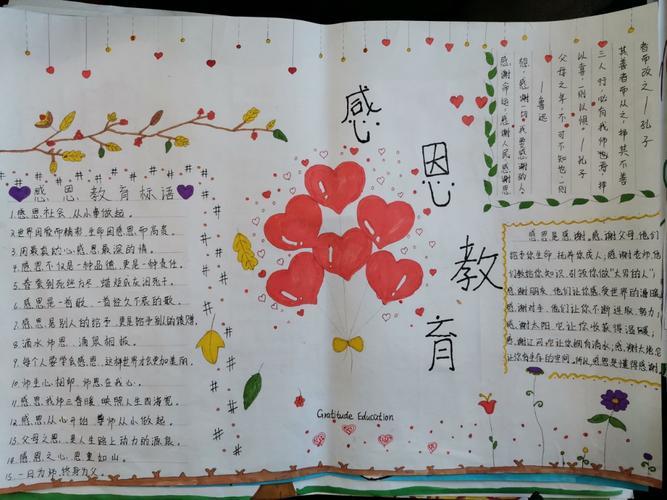 感
恩
教
育
感恩教育标语
1.感恩社会,从小事做起。
2.世界因爱而精彩,生命因感恩而高贵。
3.用最真的心,感恩最深的情。
4.感恩不仅是一种品德,更是一种责任。
5.春蚕到死丝方尽,蜡炬
6.感恩是一首歌,一首经久不衰的歌。
7.感恩是别人的给予,更是给予别人的馈赠。
8.滴水师恩,涌泉相报。
9.每个人要学会感恩,这样世界才会更加美丽。
10.师生心相印,师恩在我心。
11.感恩我师三春暖,映照人生四海宽。
12.感恩从心开始,尊师从小做起。
13.父母之恩,是人生路上动力的源泉。
14.感恩之心,恩重如山。
15.一日为师,终身为父。
Gratitude Education
感谢命运,感谢人民,感谢思
想,感谢一切我要感谢的人。
——鲁迅
父母之年,不可不知也,一则
以喜,一则以惧。——孔子
三人行,必有我师也,择
其善者而从之,择其不善
者而改之——孔子
感恩是感谢,感谢父母,他们
给予你生命,抚养你成人,感谢老师,他
们教给你知识,引领你做"大写的人";
感谢朋友,他们让你感受世界的温暖;
感谢对手,他们让你不断进取、努力;
感谢太阳,它让你收获得温暖;
感谢江河,它让你拥有清水;感谢大地,它
让你有生存的空间,所以感恩是懂得感谢。